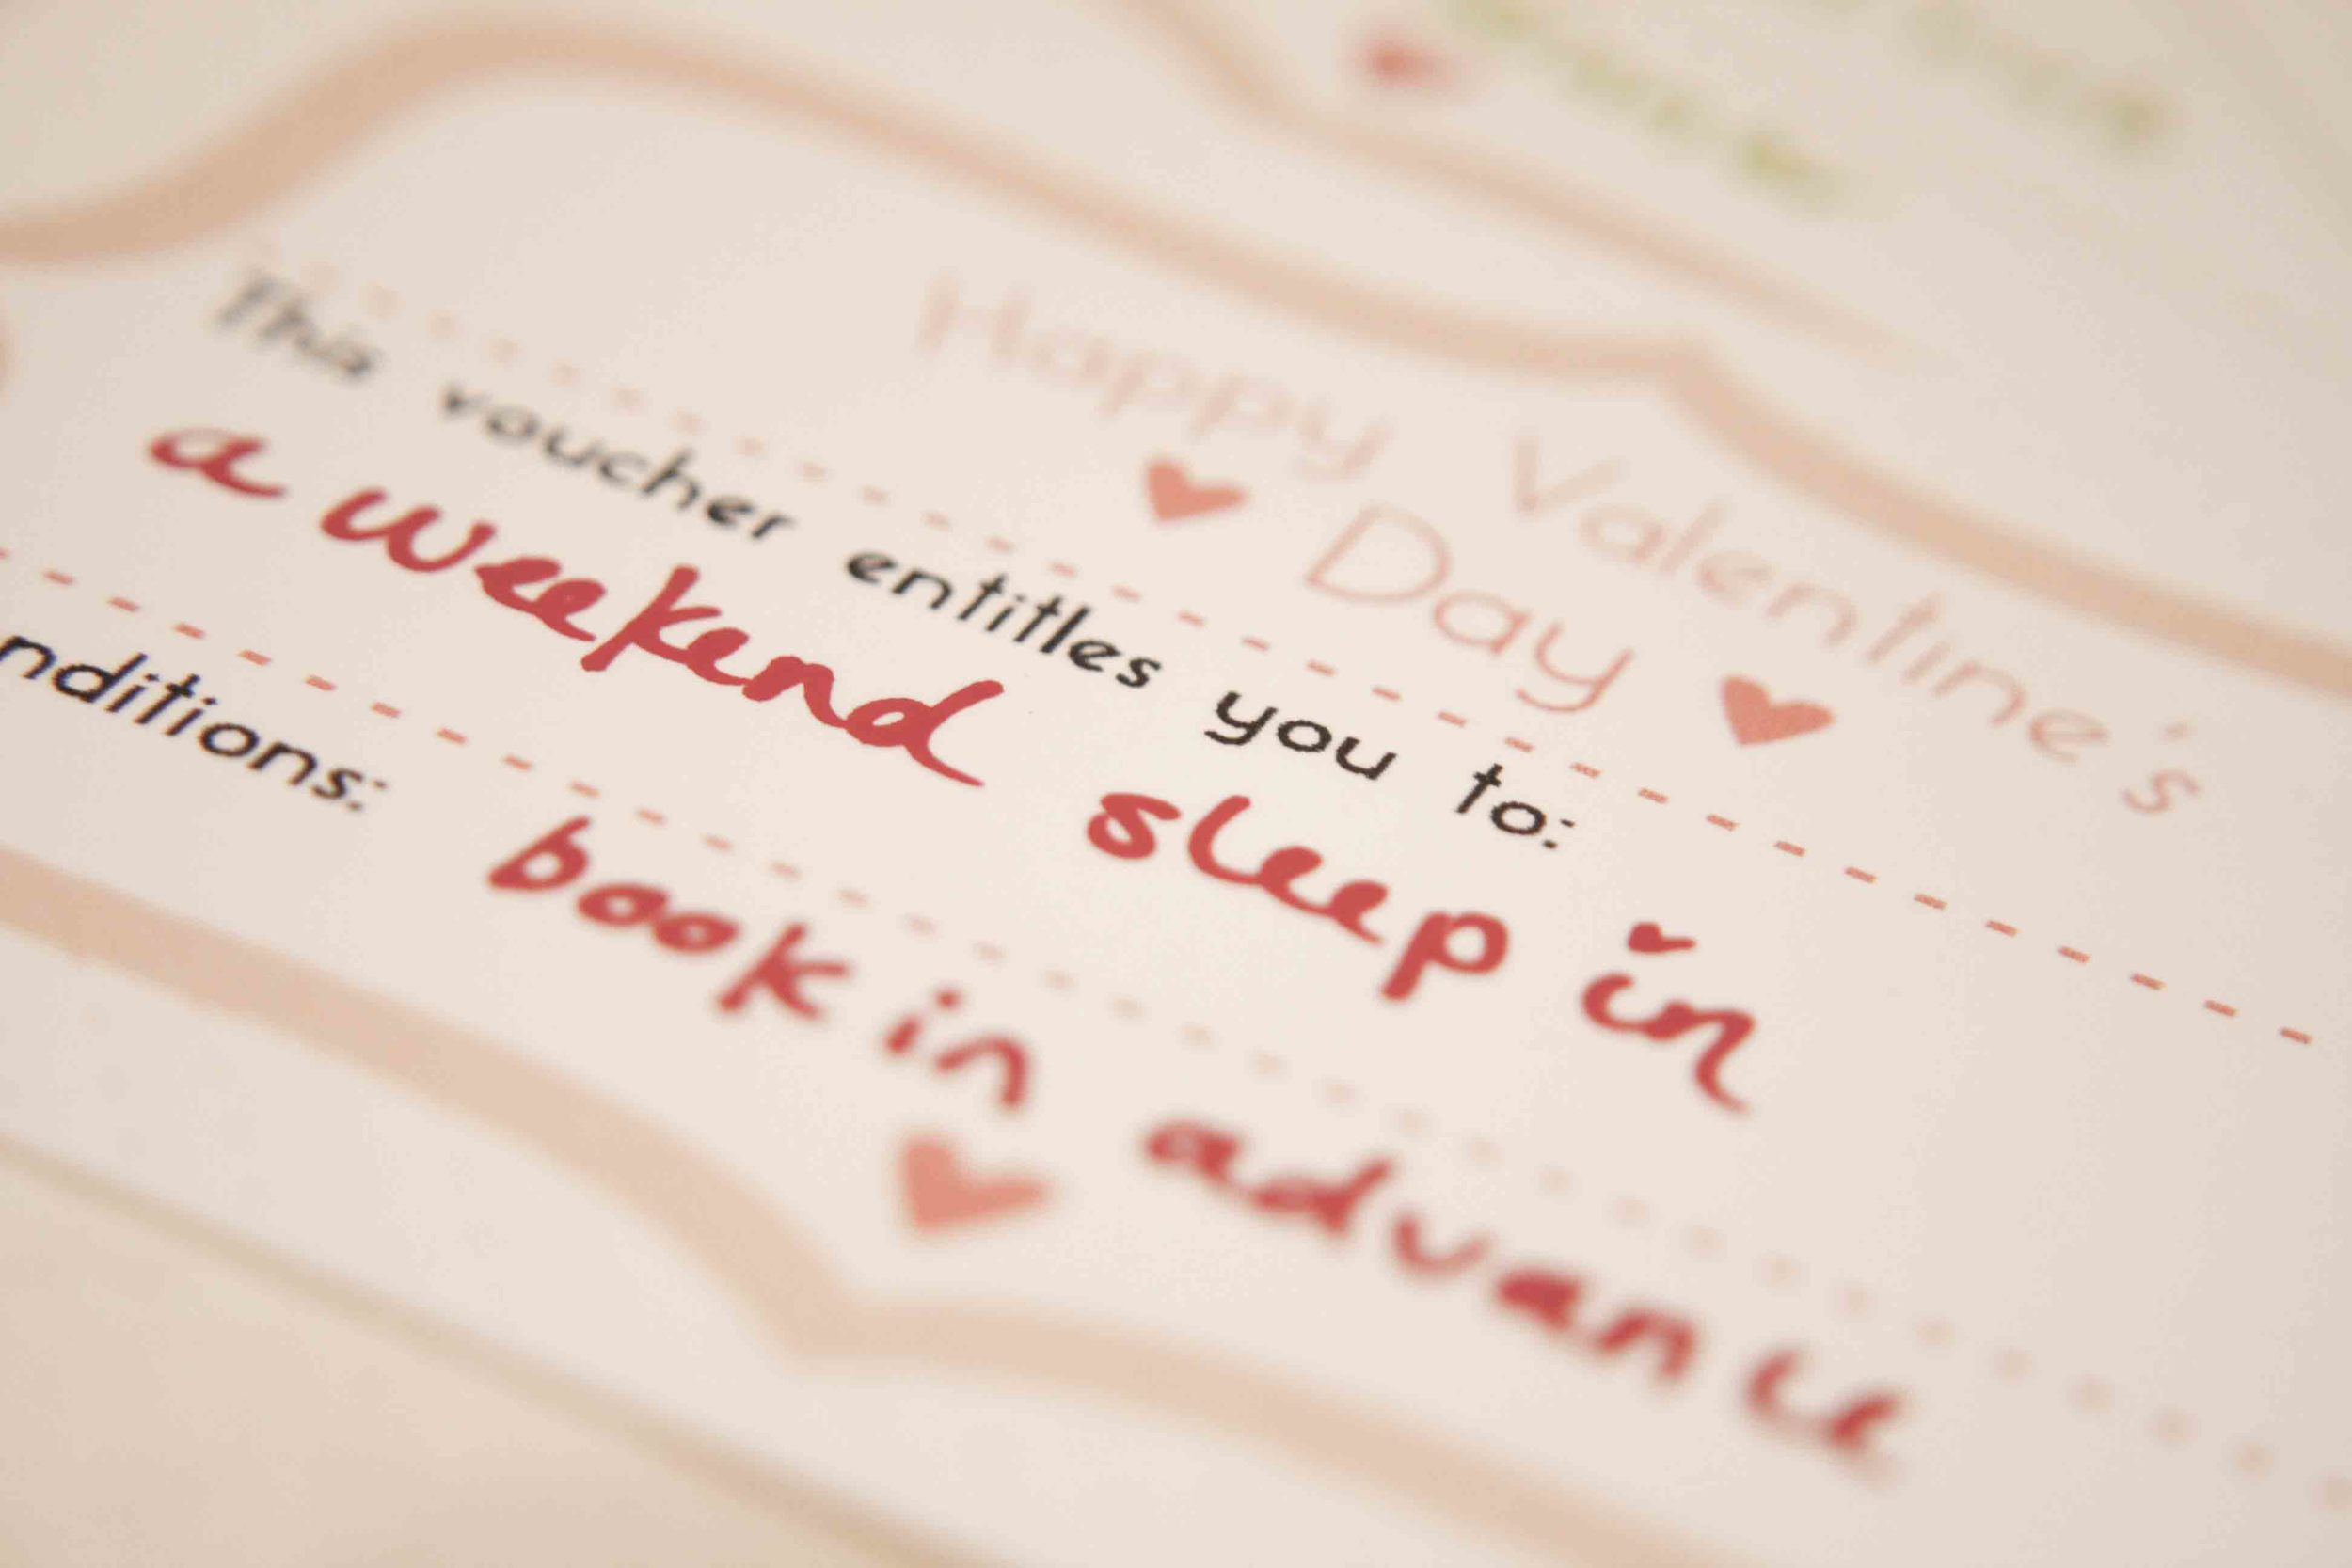 Happy Valentine's
Day
This voucher entitles you to:
a weekend sleep in
nditions: book in advance